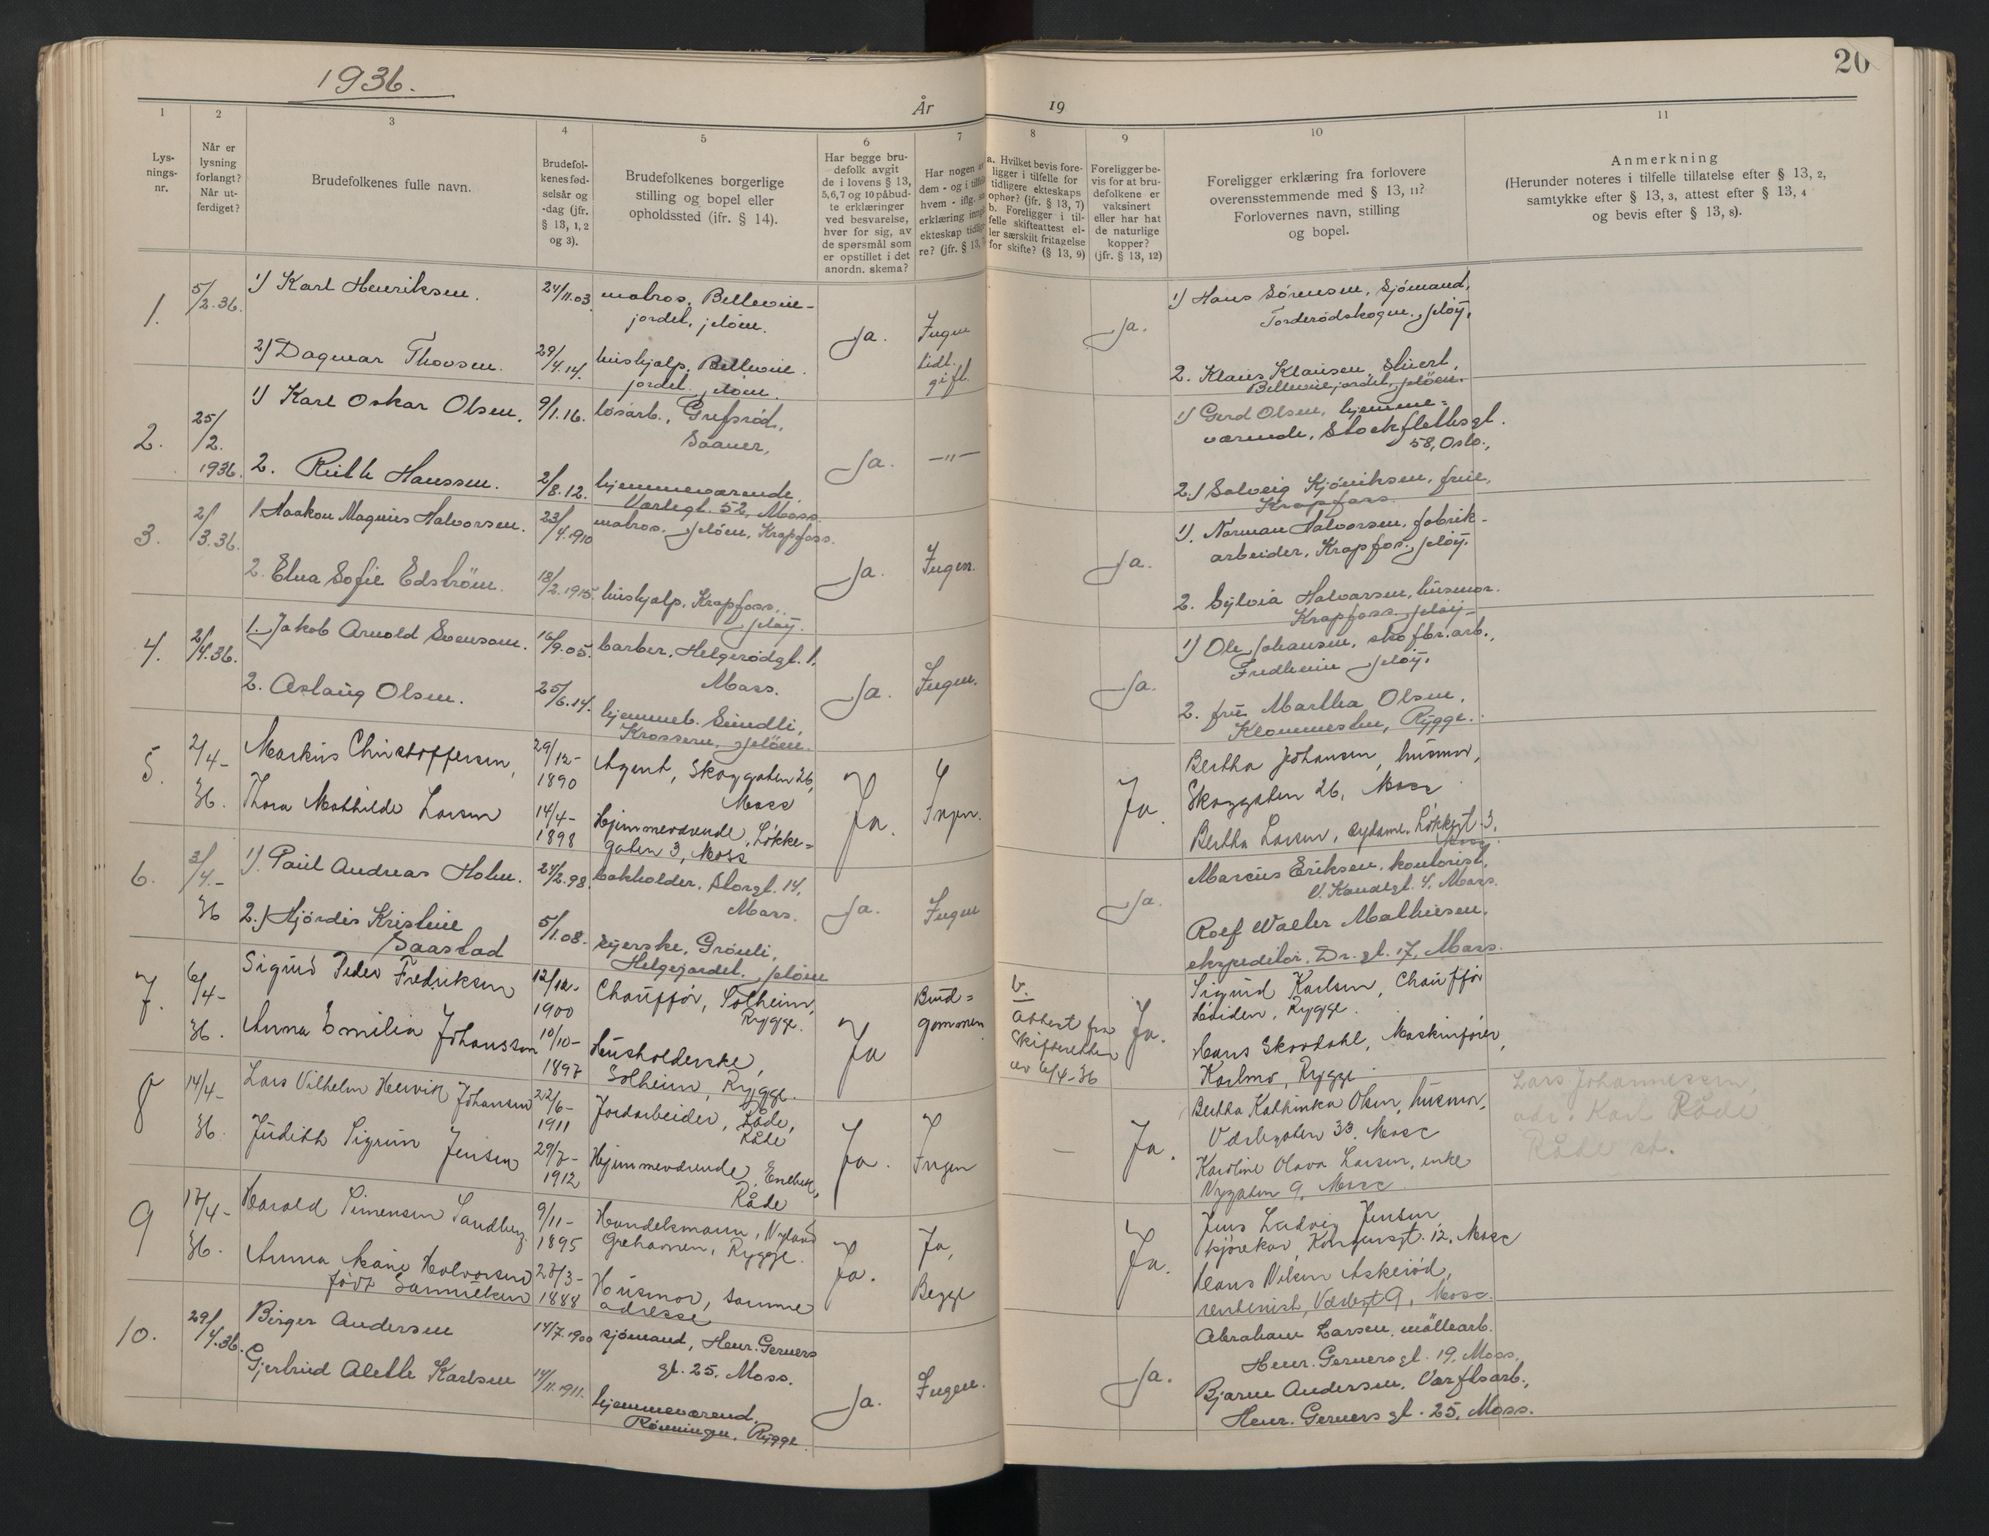 1936.
20
År
19
1
2
3
4
5
6
7
8
9
10
11
Lys-
nings-
nr.
Når er
lysning
forlangt?
Når ut-
ferdiget?
Brudefolkenes fulle navn.
Brudefol-
kenes fød-
selsår og
-dag (jfr.
§ 13, 1, 2
og 3).
Brudefolkenes borgerlige
stilling og bopel eller
opholdssted (jfr. § 14).
Har begge bru-
defolk avgit
de i lovens § 13,
5,6,7 og 10 påbud-
te erklæringer
ved besvarelse,
hver for sig, av
de spørsmål som
er opstillet i det
anordn. skema?
Har nogen av
dem - og i tilfelle
hvem - iflg.
erklæring inngå
ekteskap tidlige
re? (jfr. § 13,
a. Hvilket bevis fore-
ligger i tilfelle for
tidligere ekteskaps
ophør? (jfr. § 13, 7)
b. Foreligger i til-
felle skifteattest el-
ler særskilt fritagelse
for skifte? (§ 13, 9)
Foreligger be-
vis for at bru-
defolkene er
vaksinert
eller har hat
de naturlige
kopper?
(jfr. § 13, 12)
Foreligger erklæring fra forlovere
overensstemmende med § 13, 11?
Forlovernes navn, stilling
og bopel.
Anmerkning
(Herunder noteres i tilfelle tillatelse efter § 13, 2,
samtykke efter § 13, 3, attest efter § 13, 4
og bevis efter § 13, 8).
1.
5/2.36.
1) Karl Henriksen.
24/11.03.
matros, Bellevue-
jordet, Jeløen.
2) Dagmar Thovsen.
29/4.14.
hushjelp, Bellevue-
jordet. Jeløen.
Ja.
Ingen
tidl.
gift.
Ja.
1) Hans Sørensen, Sjömand,
Torderødskogen. Jeløy.
2. Klaus Klausen, Stuert,
Bellevuejordet, Jeløen.
2.
25/2.
1936.
1) Karl Oskar Olsen.
9/1.16.
løsarb., Grefsrød,
Saaner,
2. Ruth Hanssen.
2/8.12.
hjemmeværende.
Varlegt. 52, Moss.
Ja.
—"—
1) Gerd Olsen, hjemme-
værende, Stockflethsgt.
58, Oslo.,
2.) Solveig Kjøniksen, frue,
Krapfoss.
3.
2/3.36.
1. Haakon Magnus Halvorsen.
23/4.1910
matros. Jeløen, Krapfoss.
2. Elna Sofie Edström.
18/2.1915.
hushjelp, Krapfoss,
Jeløy.
Ja.
Ingen.
Ja.
1). Norman Halvorsen, fabrik-
arbeider, Krapfos. Jeløy.
2. Sylvia Halvorsen, husmor.
Krapfoss Jeløy-
4.
2/4.36.
1. Jakob Arnold Svensom.
16/9.05.
barber, Helgerødgt. 1.
Moss.
2. Aslaug Olsen.
25/6.14.
hjemmev. Sundli,
Krossern, Jeløen.
Ja.
Ingen.
Ja.
1) Ole Johansen, skofbr.arb.,
Fredheim Jeløy.
2. frue Martha Olsen,
Klommesten, Rygge.
5.
2/4-
36.
Markus Christoffersen,
29/12-
1890
Agent, Skoggaten 26,
Moss
Thora Mathilde Larsen
14/4-
1898
Hjemmeværende, Løkke-
gaten 3, Moss
Ja.
Ingen.
Ja.
Bertha Johansen, husmor,
Skoggaten 26, Moss
Bertha Larsen, sydame, Løkkegt. 3,
Moss
6.
3/4.-
36
1). Paul Andreas Holm.
24/2.98.
bakholder, Storgt. 14,
Moss.
2.) Hjördis Kristine
Saastad
5/1.08.
syerske, Grönli,
Helgejordet. Jeløen
Ja.
Ingen
Ja.
Marcus Eriksen, kontorist,
V. Kanalgt. 4, Moss.
Rolf Walter Mathiesen.
ekspeditör, Dr. gt. 17, Moss.
7.
6/4-
36.
Sigurd Peder Fredriksen
12/12-
1900
Chauffør, Solheim,
Rygge.
Anna Emilia Johansson
10/10-
1897
Husholderske,
Solheim, Rygge.
Ja
Brud=
gommen.
b.
Attest fra
Skifteretten
av 6/4-36
Ja.
Sigurd Karlsen, Chauffør
Høiden, Rygge.
Hans Skovdahl, Maskinfører,
Karlmo, Rygge.
8
14/4-
36.
Lars Vilhelm Henrik Johansen
22/6-
1911
Jordarbeider, Løde,
Råde
Judith Sigrun Jensen
29/7-
1912
Hjemmeværende, Enebek,
Råde
Ja.
Ingen
—
Ja.
Bertha Kathinka Olsen, husmor,
Værlegaten 33, Moss
Karoline Olava Larsen, enke
Nygaten 9, Moss.
Lars Johannessen,
adr. Karl Råde
Råde st.
9
17/4-
36.
Harald Simensen Sandberg.
9/11-
1895
Handelsmann, Nyland
Grehaven, Rygge.
Anna Marie Halvorsen
født Samuelsen
27/3-
1888
Husmor, samme
adresse
Ja.
Ja,
Begge
Ja.
Jens Ludvig Jensen
kjørekar, Kongensgt. 12, Moss
Hans Nilsen Askerød,
rentenist, Værlegt 9, Moss.
10.
29/4.36.
Birger Andersen
14/7.1900
sjömand, Henr. Gerners
gt. 25, Moss.
Gjertrud Alethe Karlsen
14/11.1911.
hjemmeværend,
Rønningen, Rygge.
Ja.
Ingen.
Ja.
Abraham Larsen, möllearb.
Henr. Gernersgt. 19, Moss.
Bjarne Andersen, Værftsarb.,
Henr. Gerners gt. 25, Moss.